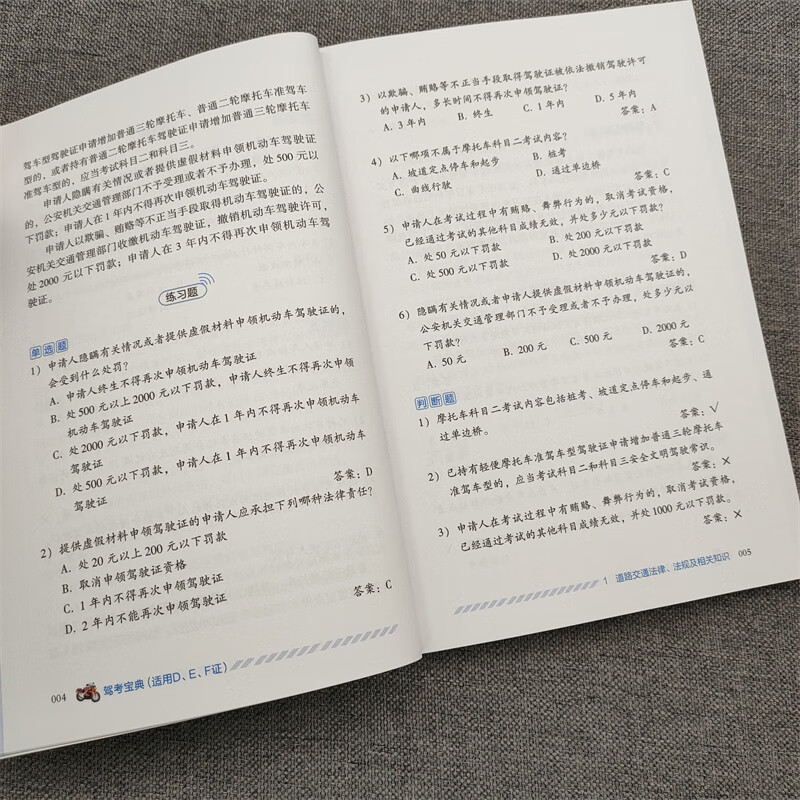 驾车型驾驶证申请增加普通三轮摩托车、普通二轮摩托车准驾车
型的，或者持有普通二轮摩托车驾驶证申请增加普通三轮摩托车
准驾车型的，应当考试科目二和科目三。
申请人隐瞒有关情况或者提供虚假材料申领机动车驾驶证
的，公安机关交通管理部门不予受理或者不予办理，处 500 元以
下罚款；申请人在 1 年内不得再次申领机动车驾驶证。
申请人以欺骗、贿赂等不正当手段取得机动车驾驶证的，公
安机关交通管理部门收缴机动车驾驶证，撤销机动车驾驶许可，
处 2000 元以下罚款；申请人在 3 年内不得再次申领机动车驾
驶证。
练习题
单选题
1）申请人隐瞒有关情况或者提供虚假材料申领机动车驾驶证的，
会受到什么处罚？
A. 申请人终生不得再次申领机动车驾驶证
B. 处 500 元以上 2000 元以下罚款，申请人终生不得再次申领
机动车驾驶证
C. 处 2000 元以下罚款，申请人在 1 年内不得再次申领机动车
驾驶证
D. 处 500 元以下罚款，申请人在 1 年内不得再次申领机动车
驾驶证
答案：D
2）提供虚假材料申领驾驶证的申请人应承担下列哪种法律责任？
A. 处 20 元以上 200 元以下罚款
B. 取消申领驾驶证资格
C. 1 年内不得再次申领驾驶证
D. 2 年内不能再次申领驾驶证
答案：C
004 驾考宝典（适用D、E、F证）
3）以欺骗、贿赂等不正当手段取得驾驶证被依法撤销驾驶许可
的申请人，多长时间不得再次申领驾驶证？
A. 3 年内 B. 终生 C. 1 年内 D. 5 年内
答案：A
4）以下哪项不属于摩托车科目二考试内容？
A. 坡道定点停车和起步 B. 桩考
C. 曲线行驶 D. 通过单边桥
答案：C
5）申请人在考试过程中有贿赂、舞弊行为的，取消考试资格，
已经通过考试的其他科目成绩无效，并处多少元以下罚款？
A. 处 50 元以下罚款 B. 处 200 元以下罚款
C. 处 500 元以下罚款 D. 处 2000 元以下罚款
答案：D
6）隐瞒有关情况或者申请人提供虚假材料申领驾驶证的，
公安机关交通管理部门不予受理或者不予办理，处多少元以
下罚款？
A. 50 元 B. 200 元 C. 500 元 D. 2000 元
答案：C
判断题
1）摩托车科目二考试内容包括桩考、坡道定点停车和起步、通
过单边桥。
答案：√
2）已持有轻便摩托车准驾车型驾驶证申请增加普通三轮摩托车
准驾车型的，应当考试科目二和科目三安全文明驾驶常识。
答案：×
3）申请人在考试过程中有贿赂、舞弊行为的，取消考试资格，
已经通过考试的其他科目成绩无效，并处 1000 元以下罚款。
答案：×
1 道路交通法律、法规及相关知识 005